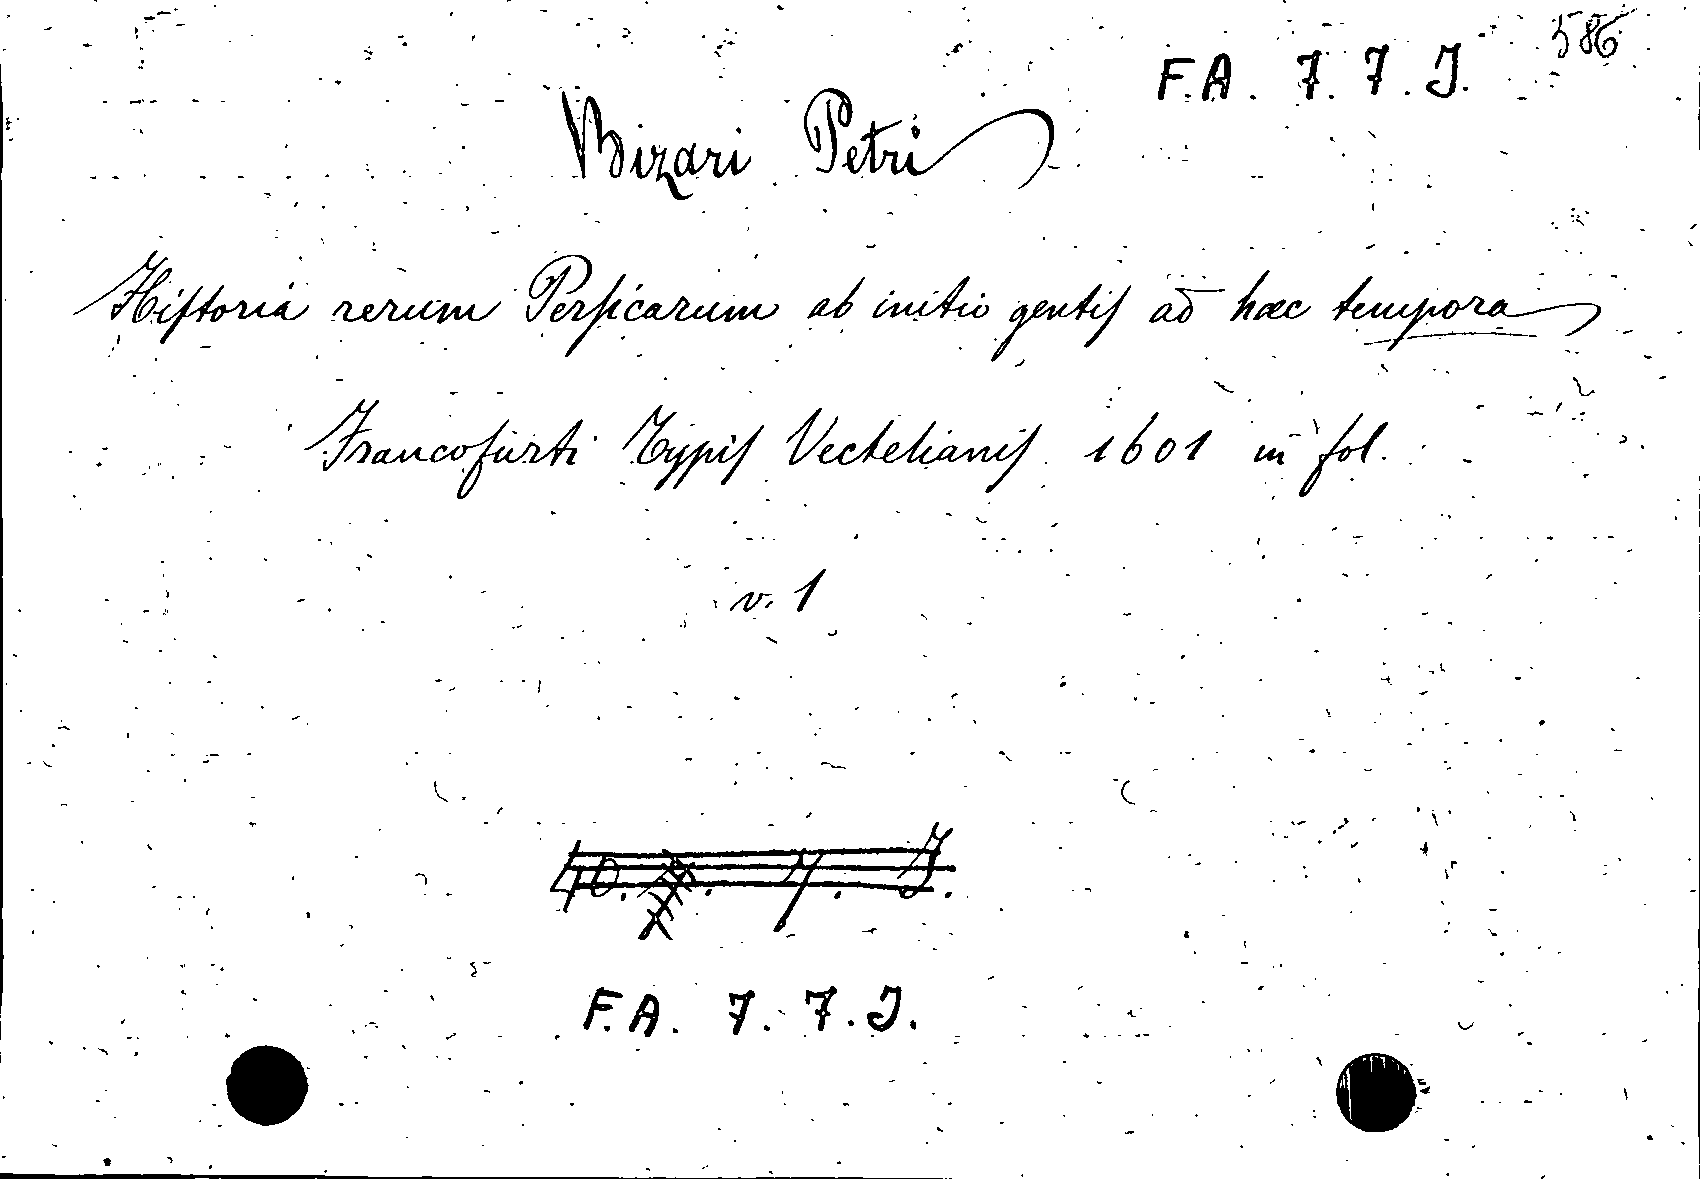 586
F.A. 7. 7. J.
Bizari Petri
Hiſtoria rerum Perſicarum ab initio gentiſ ad hæc tempora
Francofurti Typiſ Vechelianiſ 1601 in fol.
v. 1
40. 7. J.
F.A. 7. 7. J.